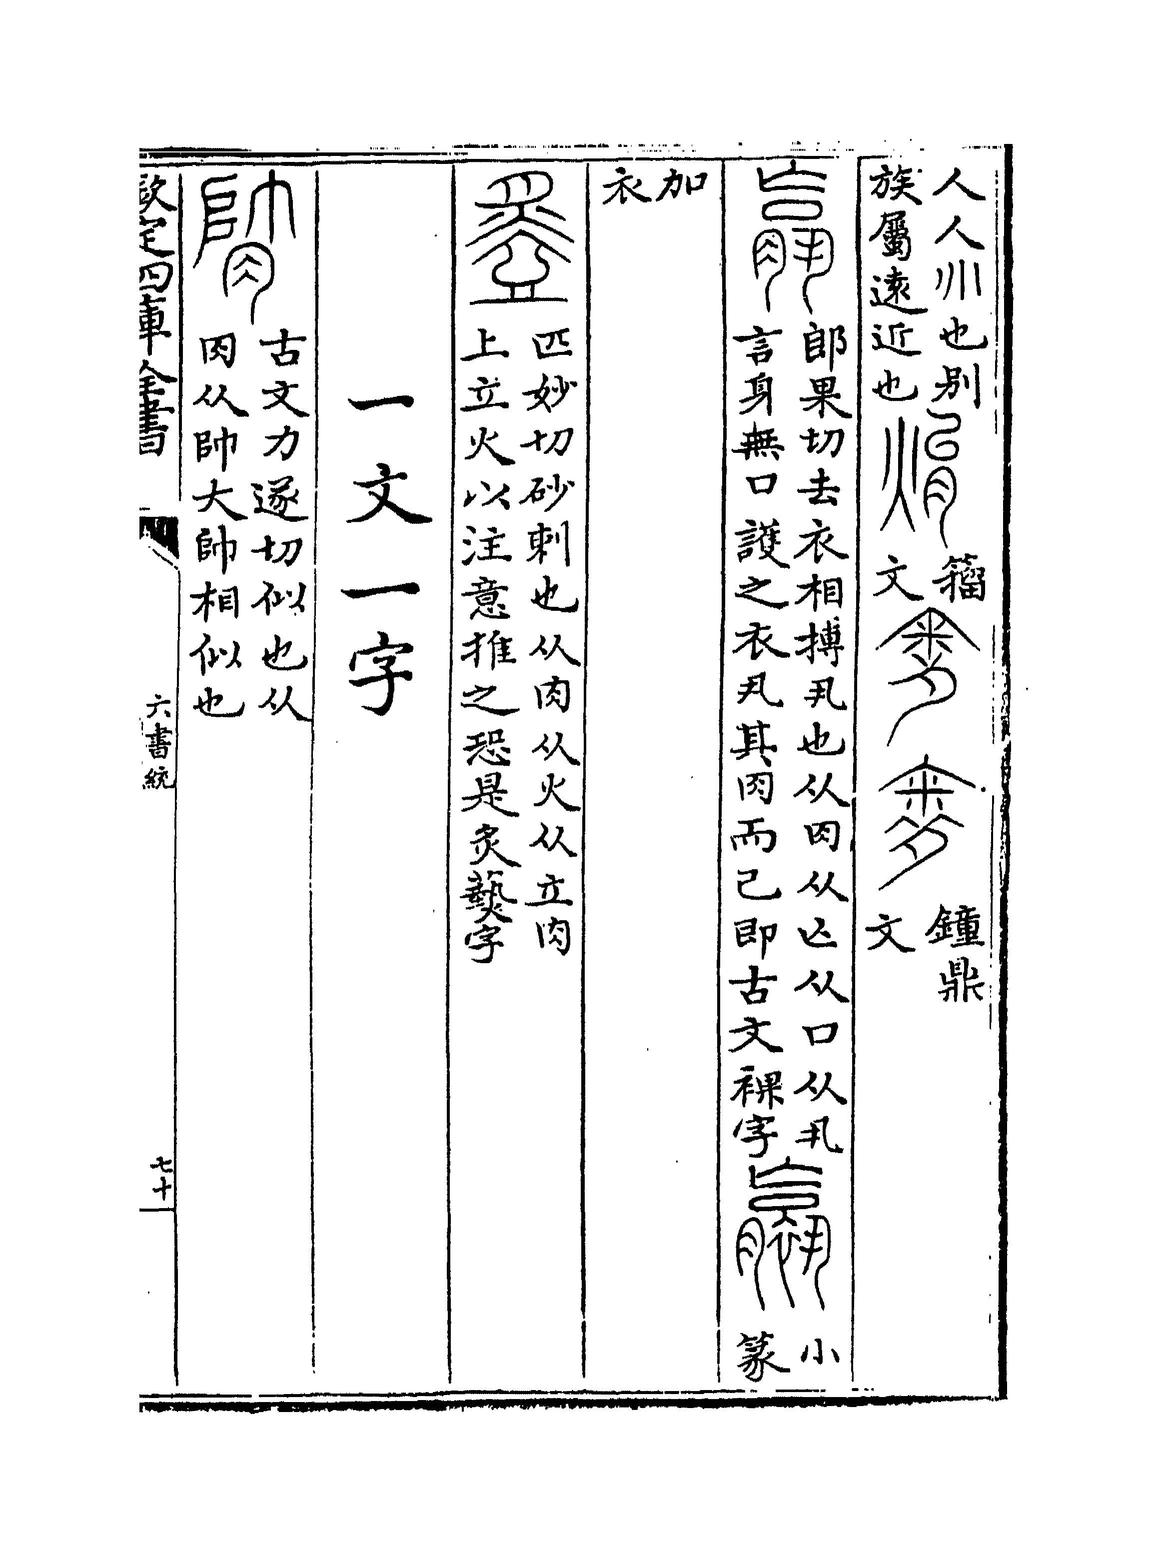 人人也别
族屬遠近也
籀
文
鐘鼎
文
郎果切去衣相搏丮也从肉从亾从口从丮
言身無口護之衣丮其肉而已即古文裸字
小
篆
加
衣
匹妙切砂刺也从肉从火从立肉
上立火以注意推之恐是炙爇字
一文一字
古文力遂切似也从
肉从帥大帥相似也
欽定四庫全書
六書統
七十